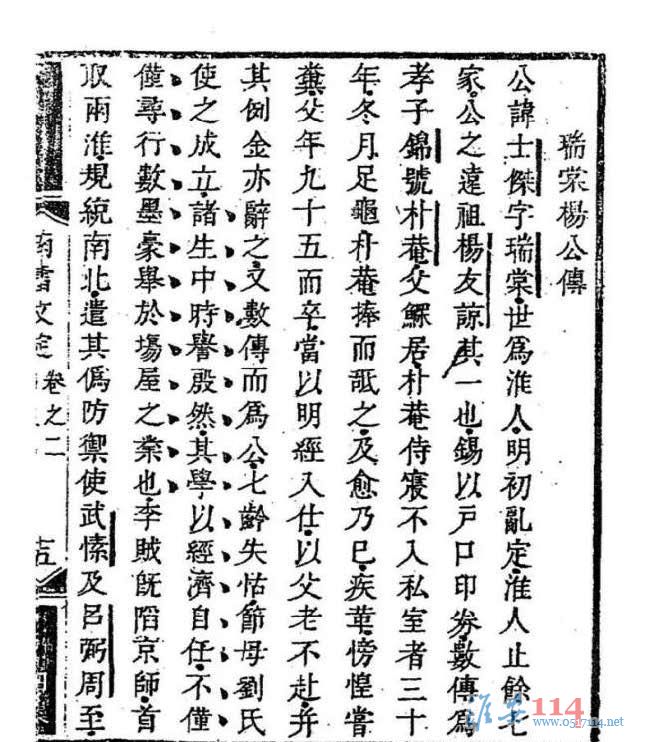 瑞棠楊公傳
公諱士傑字瑞棠世爲淮人明初亂定淮人止餘七
家公之遠祖楊友諒其一也錫以戸口印券數傳爲
孝子錦號朴菴父鰥居朴菴侍寢不入私室者三十
年冬月足龜朴菴捧而舐之及愈乃已疾革傍惶嘗
糞父年九十五而卒當以明經入仕以父老不赴并
其例金亦辭之又數傳而爲公七齡失怙節母劉氏
使之成立諸生中時譽殷然其學以經濟自任不僅
僅尋行數墨豪舉於場屋之業也李賊旣陷京師首
取兩淮規統南北遣其僞防禦使武愫及呂弼周至
文定 卷之二
淮安114
www.0517114.net